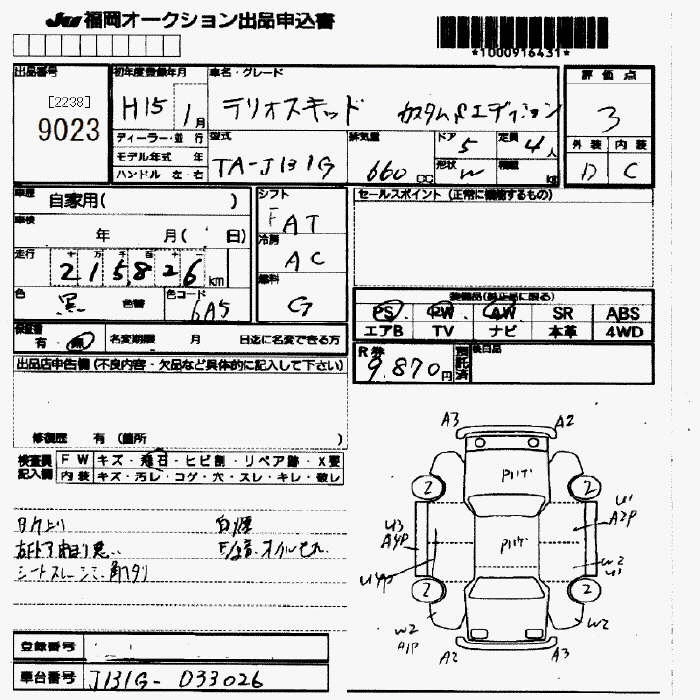 JU 福岡オークション出品申込書
*1000916431*
出品番号
[2238]
9023
初年度登録年月
H15 1月
車名・グレード
テリオスキッド カスタムSエディション
評価点
3
外装 内装
D C
ディーラー・並行
モデル年式 年
ハンドル 左・右
型式
TA-J131G
排気量
660 cc
ドア
5
定員
4人
形状
W
積載
kg
車歴
自家用( )
車検
年 月( 日)
走行
十 万 千 百 十 一
215,826 km
色
黒
色替
色コード
6A5
シフト
FAT
冷房
AC
燃料
G
セールスポイント (正常に機能するもの)
装備品(純正品に限る)
PS PW AW SR ABS
エアB TV ナビ 本革 4WD
保証書
有・無
名変期限 月 日迄に名変できる方
R券
9,870円
預託済
後日品
出品店申告欄 (不良内容・欠品など具体的に記入して下さい)
修復歴 有 (箇所 )
検査員記入欄
FW キズ・飛石・ヒビ割・リペア跡・X要
内装 キズ・汚レ・コゲ・穴・スレ・キレ・破レ
白煙
シートスレ
A3 A2
2 2
U3 A4P
U4P
U1 A2P
W2 U1
2 2
W2 A1P
W2
A2 A3
登録番号
車台番号 J131G-D33026